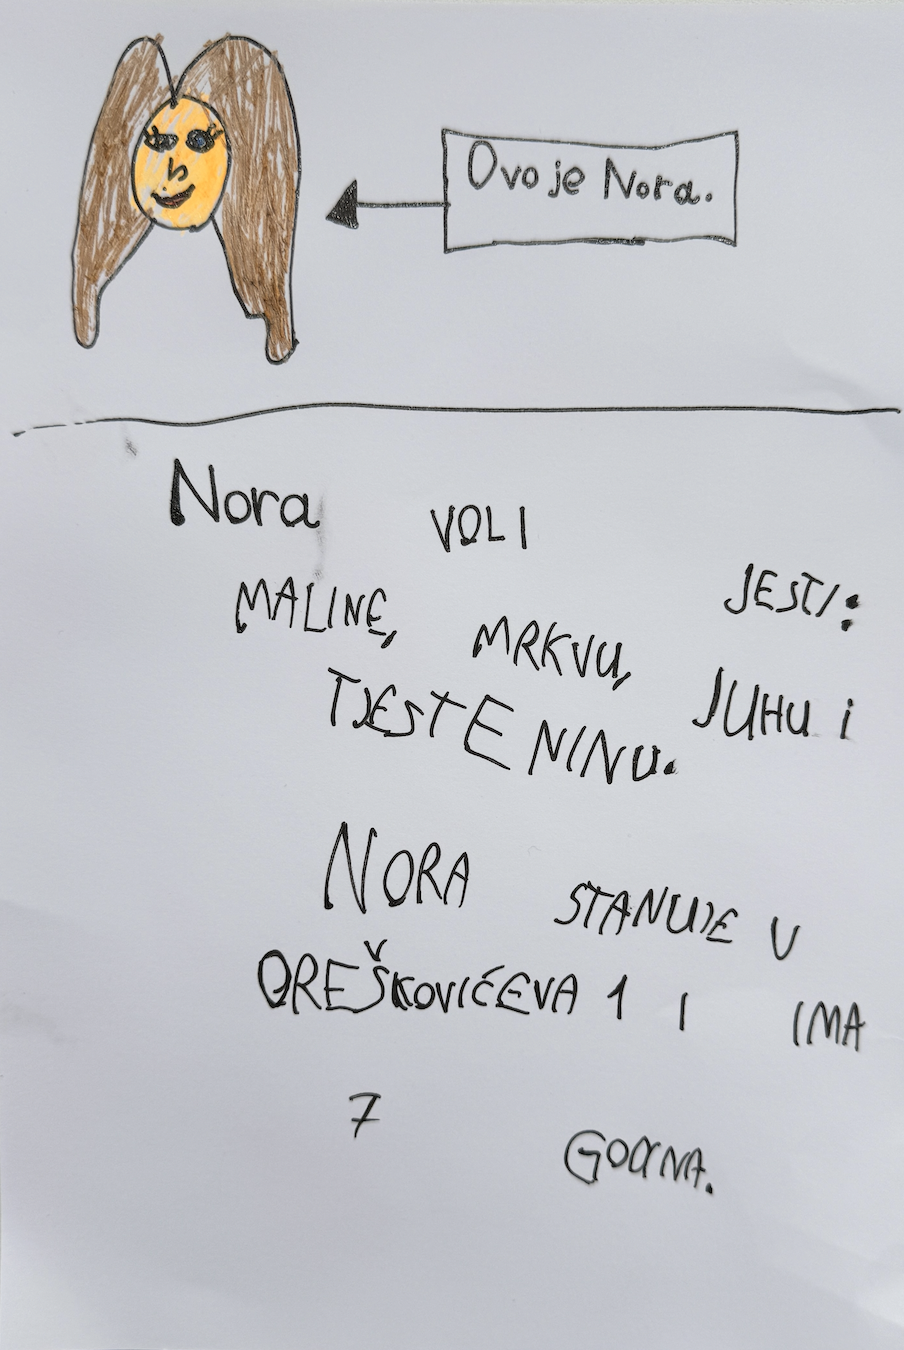 Ovo je Nora.
Nora VOLI JESTI:
MALINE, MRKVU, JUHU i
TJESTENINU.
NORA STANUJE U
OREŠKOVIĆEVA 1 I IMA
7 GODINA.